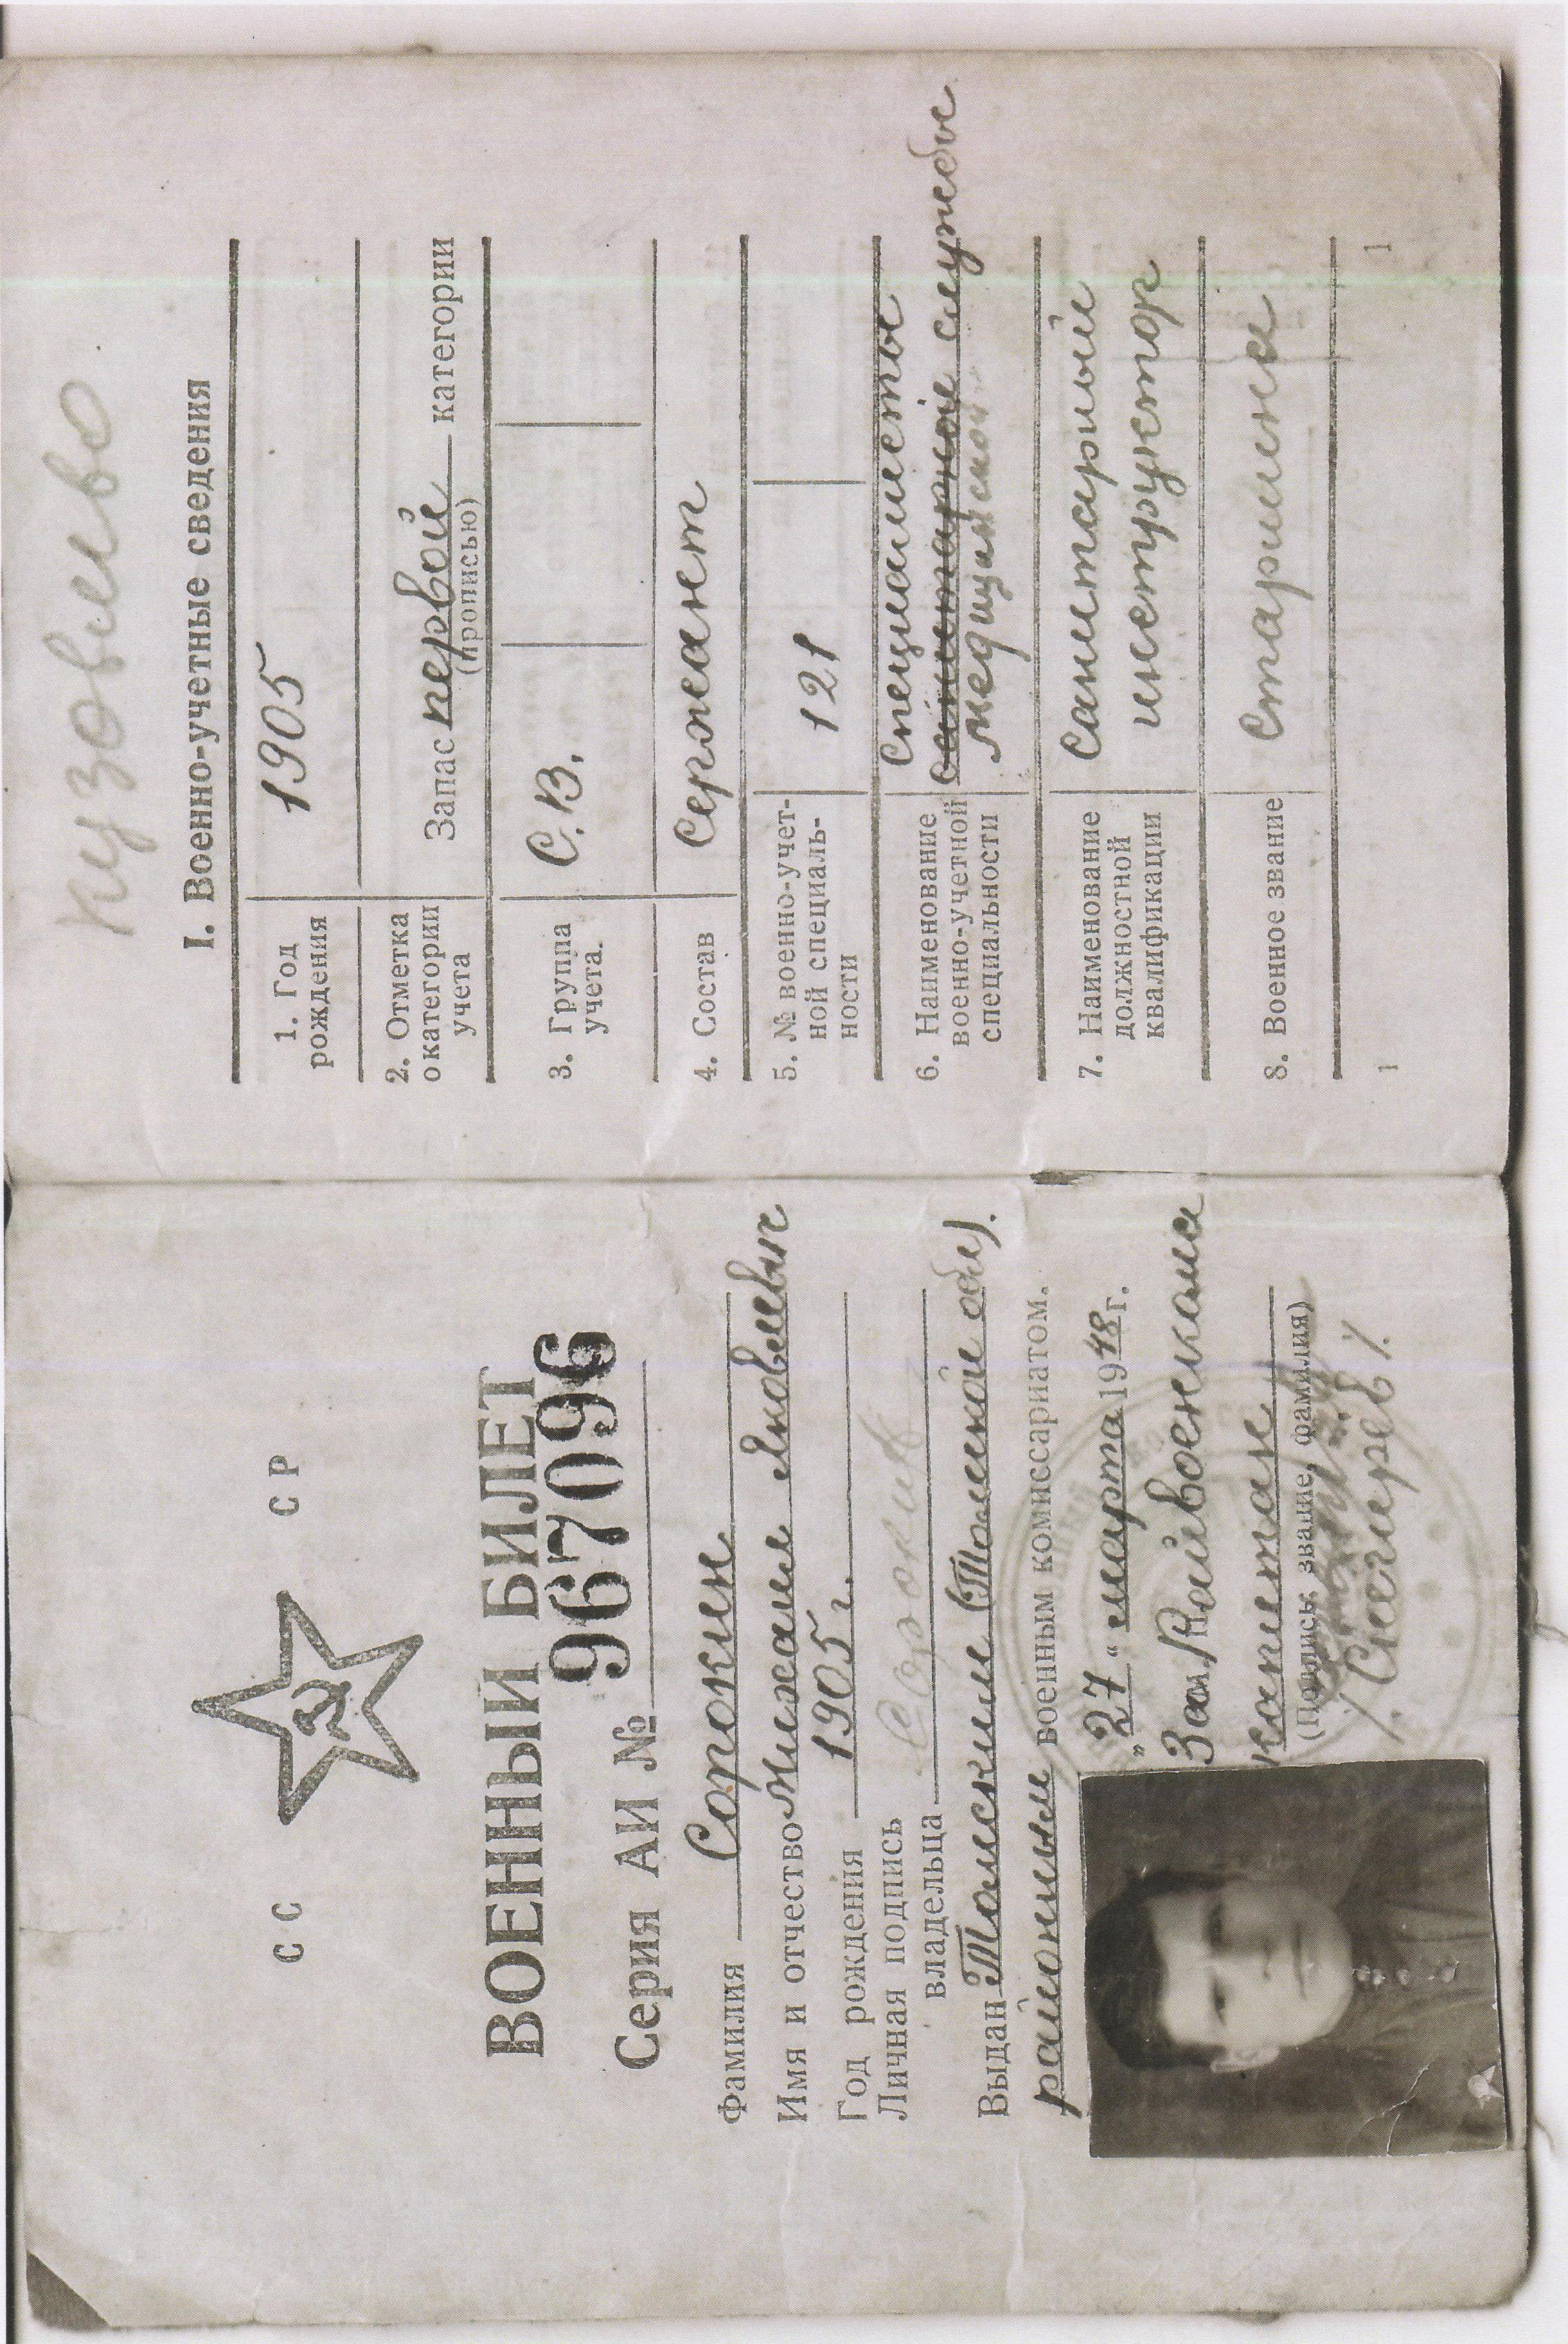 СС СР
ВОЕННЫЙ БИЛЕТ
Серия АИ № 967096
Фамилия Сорокин
Имя и отчество Михаил Яковлевич
Год рождения 1905 г.
Личная подпись
владельца Сорокин
Выдан Томским (Томской обл).
районным военным комиссариатом.
„27" марта 1948 г.
Зам Райвоенкома
капитан
(Подпись, звание, фамилия)
/. Снегирев /.
кузовлево
I. Военно-учетные сведения
1. Год
рождения
1905
2. Отметка
о категории
учета
Запас первой категории
(прописью)
3. Группа
учета.
С.В.
4. Состав
Сержант
5. № военно-учет-
ной специаль-
ности
121
6. Наименование
военно-учетной
специальности
Специалисты
санитарной службы
медицинской
7. Наименование
должностной
квалификации
Санитарный
инструктор
8. Военное звание
Старшина
1 1